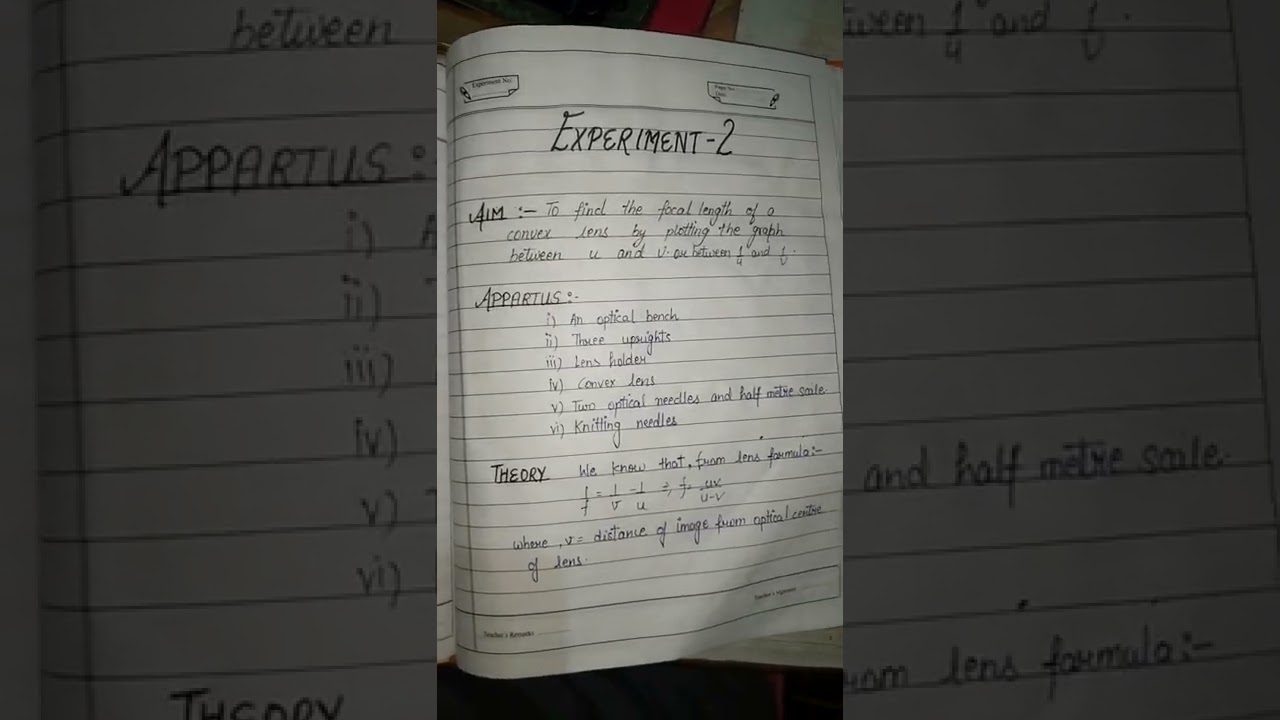 Experiment No.
Page No.
Date
EXPERIMENT-2
AIM :- To find the focal length of a
convex lens by plotting the graph
between u and v. or between 1/u and 1/v.
APPARTUS:-
i) An optical bench
ii) Three uprights
iii) Lens holder
iv) Convex lens
v) Two optical needles and half metre scale.
vi) Knitting needles
THEORY We know that, from lens formula:-
1/f = 1/v - 1/u ⇒ f = uv/u-v
where, v = distance of image from optical centre
of lens.
Teacher's Signature
Teacher's Remarks